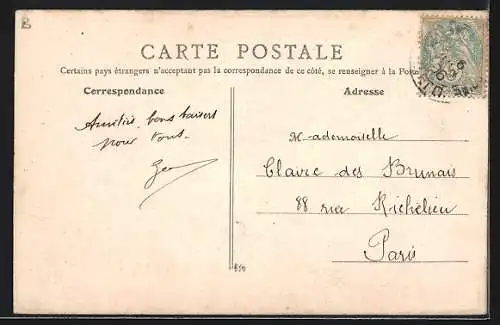 CARTE POSTALE
Certains pays étrangers n'acceptant pas la correspondance de ce côté, se renseigner à la Poste
Correspondance
Adresse
Amitiés, bons baisers
pour tous.
Mademoiselle
Claire des Brunais
88 rue Richelieu
Paris